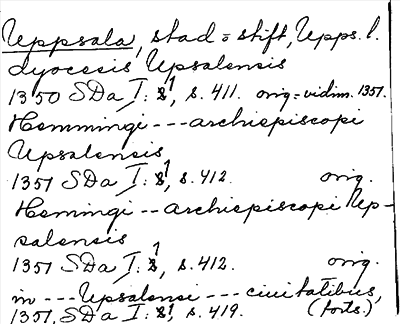 Uppsala, stad = stift, Upps. l.
dyocesis Upsalensis
1350 SDa I: 1, s. 411. orig = vidim. 1351.
Hemmingi --- archiepiscopi
Upsalensis
1351 SDa I: 1, s. 412. orig.
Hemingi -- archiepiscopi Up-
salensis
1351 SDa I: 1, s. 412. orig.
in --- Upsalensi --- ciuitatibus,
1351, S.Da I: 1, s. 419. (forts.)